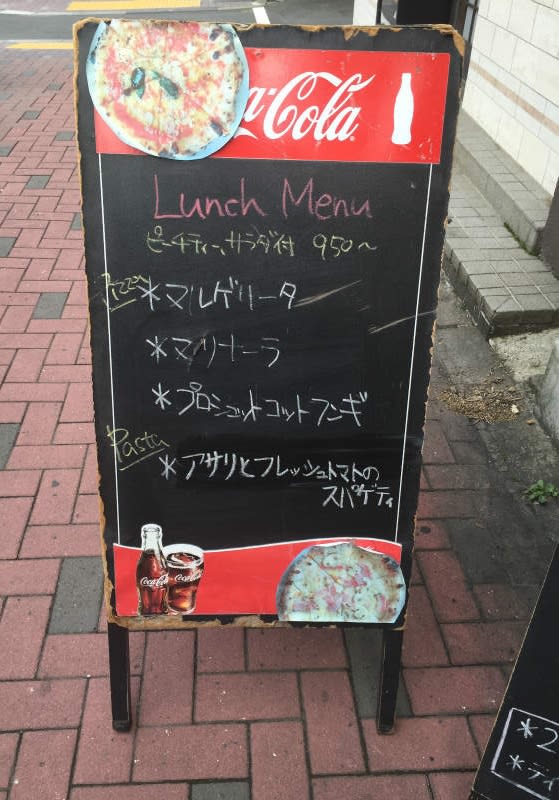 Coca-Cola
Lunch Menu
ピーチティー、サラダ付 950~
Pizza
*マルゲリータ
*マリナーラ
*プロシュットコットフンギ
Pasta
*アサリとフレッシュトマトの
スパゲティ
Coca-Cola
Coca-Cola
*2
*ディ